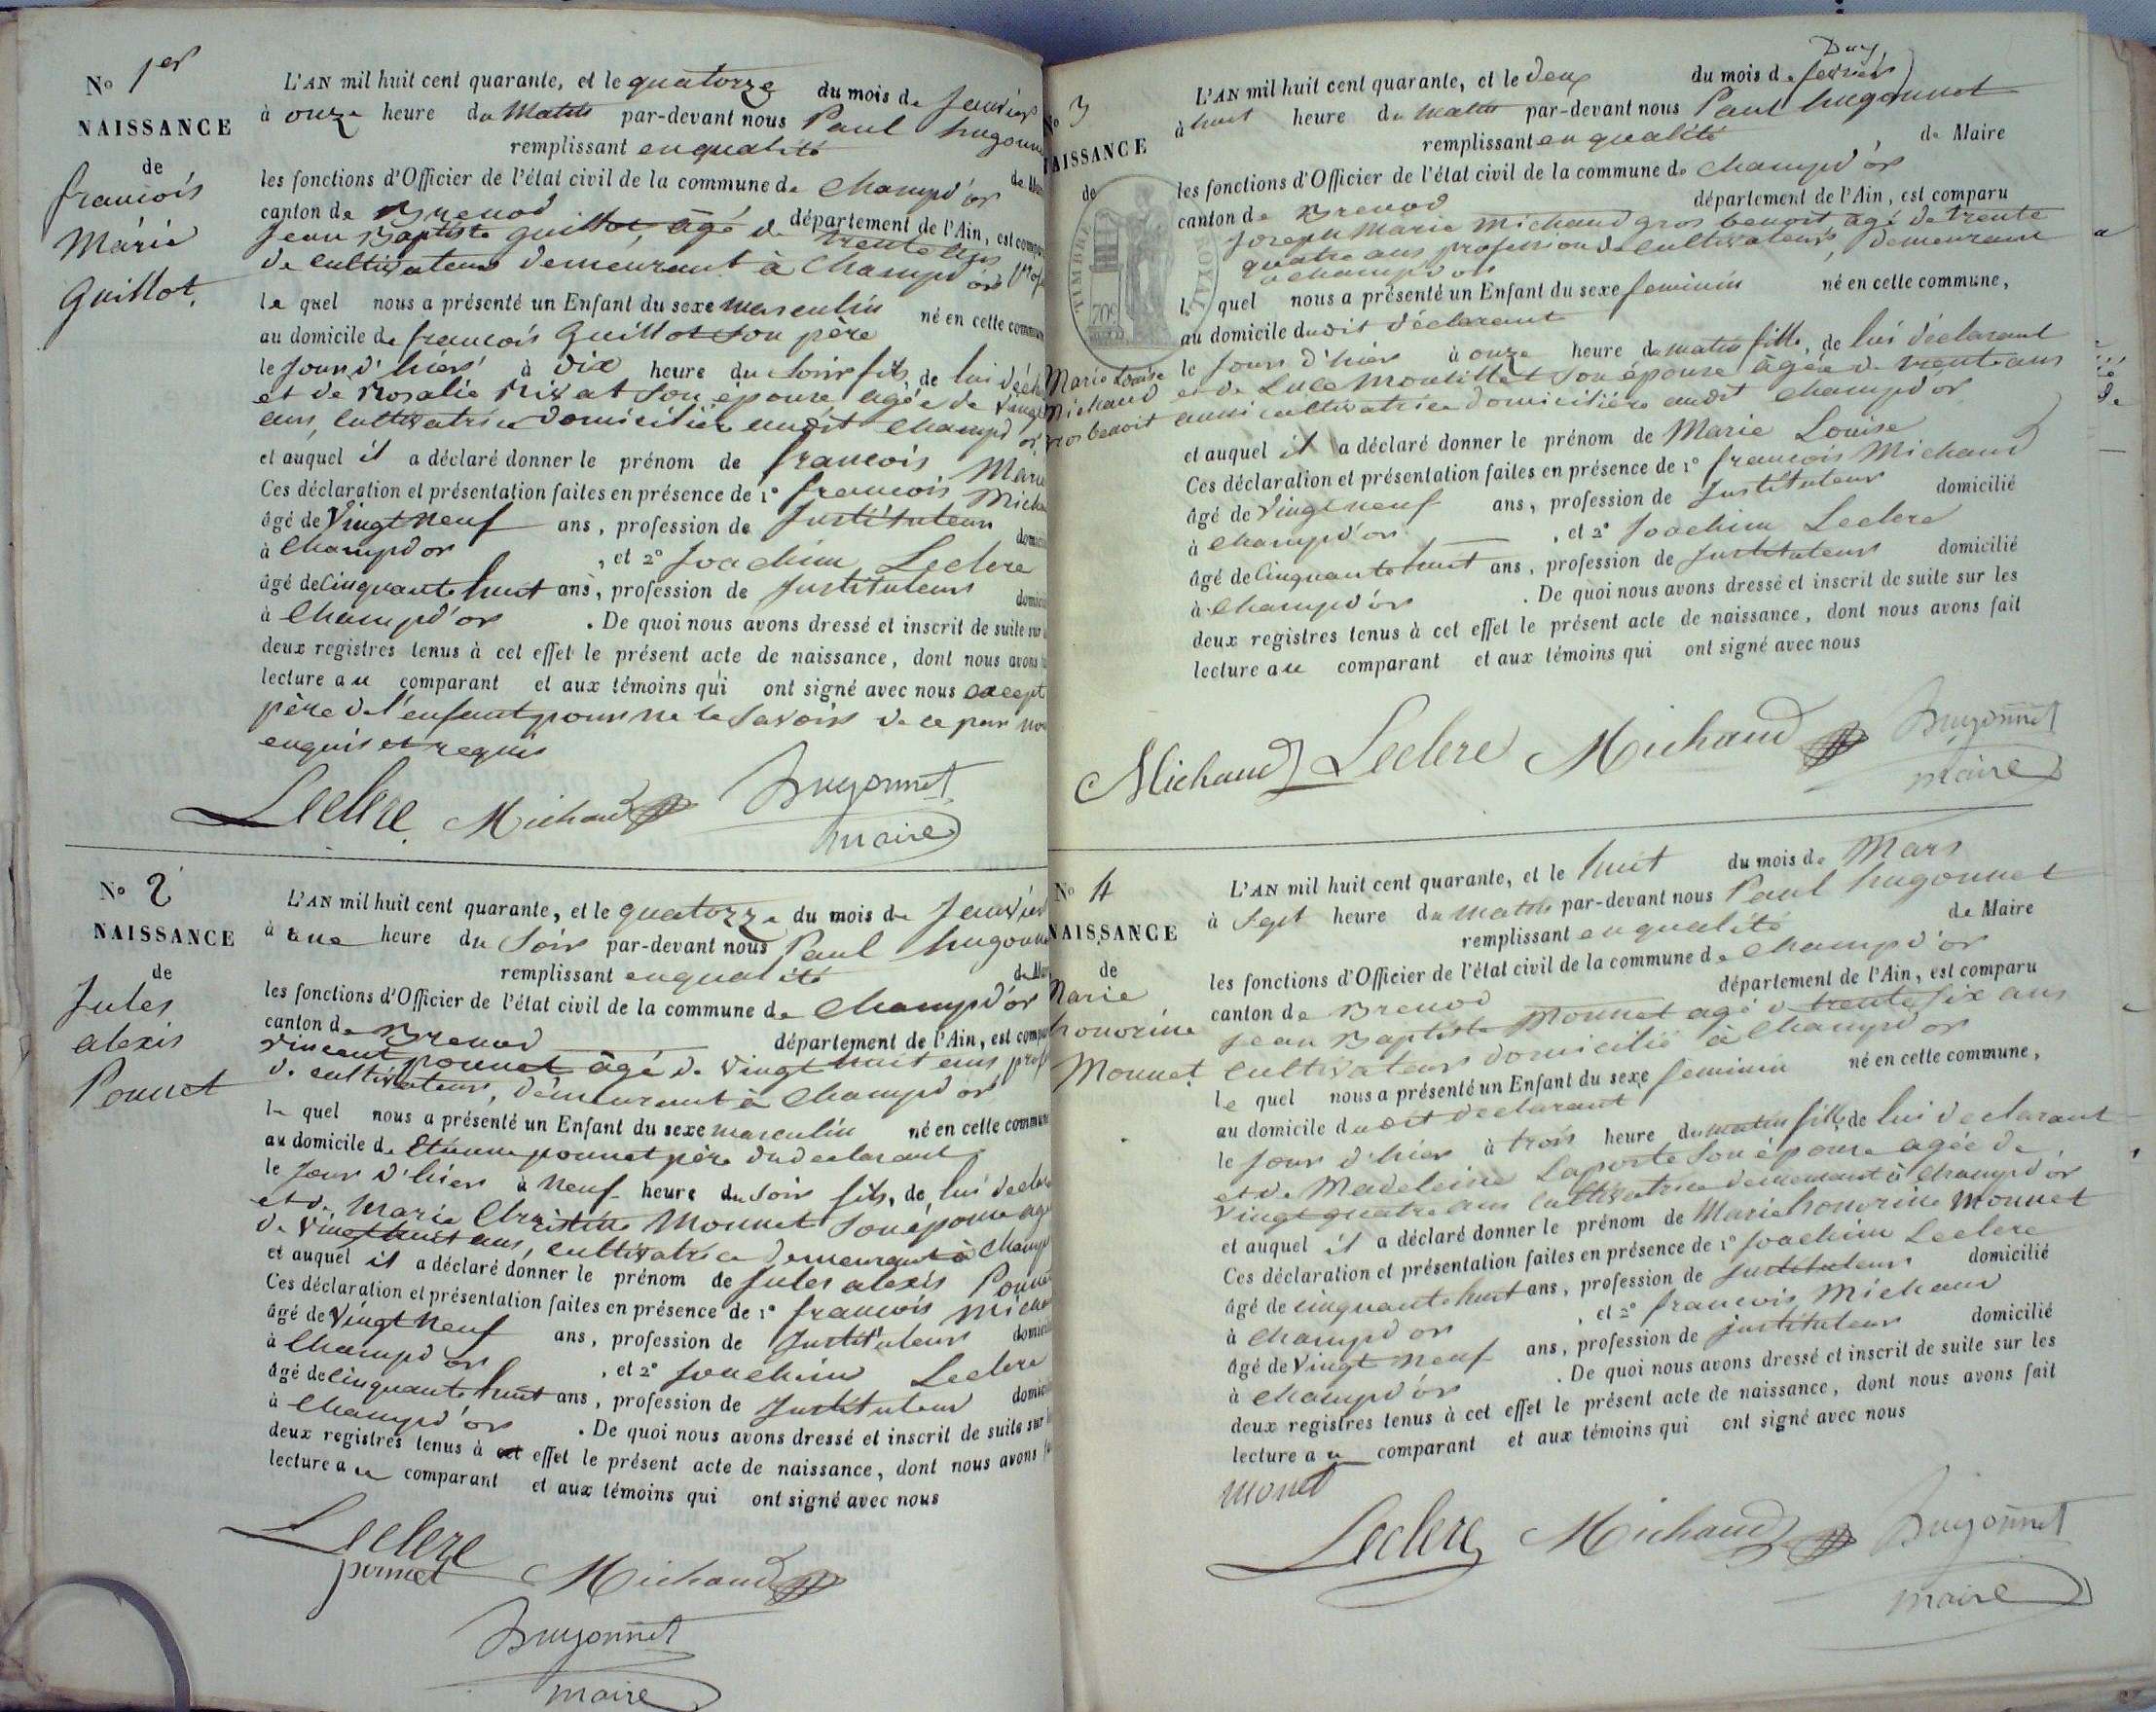 No 1er
NAISSANCE
de
francois
Marie
Guillot.
L'AN mil huit cent quarante, et le quatorze du mois de Janvier
à onze heure du Matin par-devant nous Paul hugonn
remplissant en qualité de
les fonctions d'Officier de l'état civil de la commune de Champd'or
canton de Brenod département de l'Ain, est comp
Jean Baptiste Guillot, âgé de trente
de cultivateur demeurant à Champd'or
le quel nous a présenté un Enfant du sexe masculin né en cette commun
au domicile de francois Guillot son père
le Jour d'hier à dix heure du Soir fils, de lui décl
et de Rosalie Nivat Son épouse agée de Vingt
ans, Cultivatrice domiciliée audit Champd'or
et auquel il a déclaré donner le prénom de francois Marie
Ces déclaration et présentation faites en présence de 1° francois Micha
âgé de Vingt neuf ans, profession de Instituteur domici
à Champd'or , et 2° Joachim Leclere
âgé de Cinquante huit ans, profession de Instituteur domici
à Champd'or . De quoi nous avons dressé et inscrit de suite sur
deux registres tenus à cet effet le présent acte de naissance, dont nous avons
lecture au comparant et aux témoins qui ont signé avec nous except
père de l'enfant pour ne le Savoir de ce par nou
enquis et requis
Leclere Michaud hugonnet
maire
No 2
NAISSANCE
de
Jules
alexis
Ponnet
L'AN mil huit cent quarante, et le quatorze du mois de Janvier
à une heure du Soir par-devant nous Paul hugonn
remplissant en qualité de
les fonctions d'Officier de l'état civil de la commune de Champd'or
canton de Brenod département de l'Ain, est comp
Vincent ponnet âgé de Vingt huit ans prof
de cultivateur, demeurant à Champd'or
le quel nous a présenté un Enfant du sexe masculin né en cette commun
au domicile de Etienne ponnet père du declarant
le Jour d'hier à Neuf heure du Soir fils, de lui decla
et de Marie Christine Monnet Son épouse ag
de Vingt huit ans, cultivatrice demeurant à Champ
et auquel il a déclaré donner le prénom de Jules alexis Ponne
Ces déclaration et présentation faites en présence de 1° francois Micha
âgé de Vingt Neuf ans, profession de Instituteur domicil
à Champd'or , et 2° Joachim Leclere
âgé de Cinquante huit ans, profession de Instituteur domici
à Champd'or . De quoi nous avons dressé et inscrit de suite sur
deux registres tenus à cet effet le présent acte de naissance, dont nous avons
lecture au comparant et aux témoins qui ont signé avec nous
Leclere
ponnet Michaud
hugonnet
maire
3
NAISSANCE
de
TIMBRE ROYAL
Marie Louise
Michaud
gros benoit
L'AN mil huit cent quarante, et le deux du mois de fevrier
à huit heure du Matin par-devant nous Paul hugonnet
remplissant en qualité de Maire
les fonctions d'Officier de l'état civil de la commune de Champd'or
canton de Brenod département de l'Ain, est comparu
Joseph Marie Michaud gros benoit âgé de trente
quatre ans profession de cultivateur, demeurant
à Champd'or
le quel nous a présenté un Enfant du sexe feminin né en cette commune,
au domicile dudit déclarant
le Jour d'hier à onze heure du matin fille, de lui déclarant
et de Luce Moutillet Son épouse âgée de trente ans
aussi cultivatrice domiciliée audit Champd'or
et auquel il a déclaré donner le prénom de Marie Louise
Ces déclaration et présentation faites en présence de 1° francois Michaud
âgé de Vingt neuf ans, profession de Instituteur domicilié
à Champd'or , et 2° Joachim Leclere
âgé de Cinquante huit ans, profession de Instituteur domicilié
à Champd'or . De quoi nous avons dressé et inscrit de suite sur les
deux registres tenus à cet effet le présent acte de naissance, dont nous avons fait
lecture au comparant et aux témoins qui ont signé avec nous
Michaud Leclere Michaud hugonnet
maire
No 4
NAISSANCE
de
Marie
honorine
Monnet
L'AN mil huit cent quarante, et le huit du mois de Mars
à Sept heure du Matin par-devant nous Paul hugonnet
remplissant en qualité de Maire
les fonctions d'Officier de l'état civil de la commune de Champd'or
canton de Brenod département de l'Ain, est comparu
Jean Baptiste Monnet agé de trente six ans
Cultivateur domicilié à Champd'or
le quel nous a présenté un Enfant du sexe feminin né en cette commune,
au domicile dudit declarant
le Jour d'hier à trois heure du matin fille, de lui declarant
et de Madeleine Laporte Son épouse agée de
Vingt quatre ans Cultivatrice demeurant à Champd'or
et auquel il a déclaré donner le prénom de Marie honorine Monnet
Ces déclaration et présentation faites en présence de 1° Joachim Leclere
âgé de cinquante huit ans, profession de Instituteur domicilié
à Champd'or , et 2° francois Michaud
âgé de Vingt neuf ans, profession de instituteur domicilié
à Champd'or . De quoi nous avons dressé et inscrit de suite sur les
deux registres tenus à cet effet le présent acte de naissance, dont nous avons fait
lecture au comparant et aux témoins qui ont signé avec nous
monet
Leclere Michaud hugonnet
maire